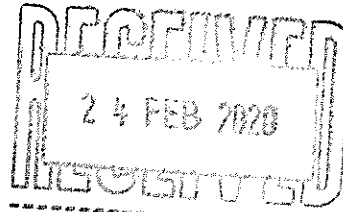 RECEIVED
24 FEB 2020